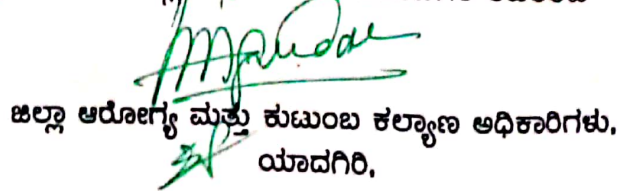 ಜಿಲ್ಲಾ ಆರೋಗ್ಯ ಮತ್ತು ಕುಟುಂಬ ಕಲ್ಯಾಣ ಅಧಿಕಾರಿಗಳು,
ಯಾದಗಿರಿ,